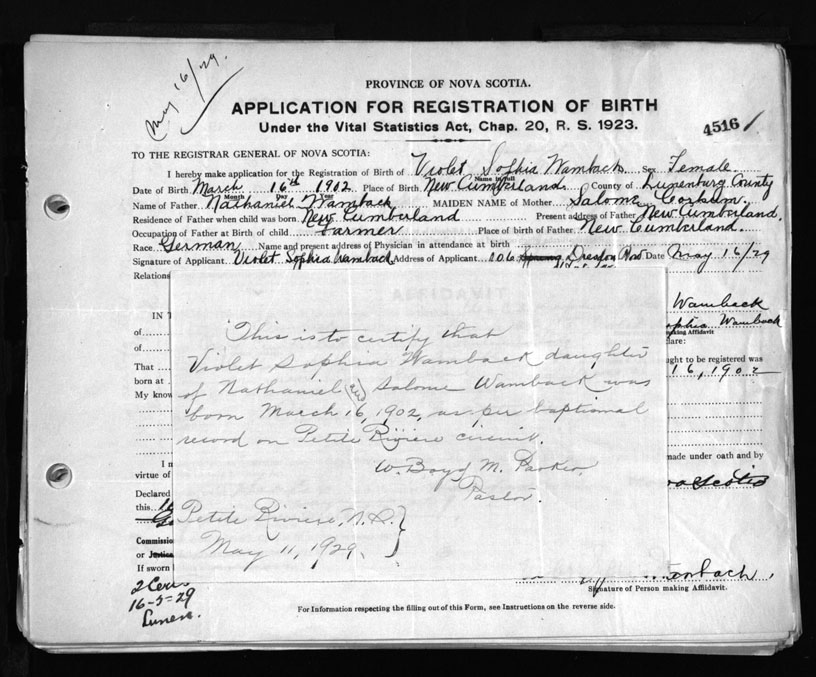 May 16/29.
PROVINCE OF NOVA SCOTIA.
APPLICATION FOR REGISTRATION OF BIRTH
Under the Vital Statistics Act, Chap. 20, R. S. 1923.
4516
TO THE REGISTRAR GENERAL OF NOVA SCOTIA:
I hereby make application for the Registration of Birth of Violet Sophia Wamback Sex Female
Name in full
Date of Birth March 16th 1902 Place of Birth New Cumberland County of Lunenburg County
Month Day Year
Name of Father Nathaniel Wamback MAIDEN NAME of Mother Salome
Residence of Father when child was born New Cumberland Present address of Father New Cumberland.
Occupation of Father at Birth of child Farmer Place of birth of Father New Cumberland.
Race German Name and present address of Physician in attendance at birth
Signature of Applicant Violet Sophia Wamback Address of Applicant 106 Dresden Row Date May 16/29
Relations
Wamback
IN T
Sophia Wamback
of
making Affidavit
of
lare:
That
ught to be registered was
born at
16, 1902
My know
This is to certify that
Violet Sophia Wamback daughter
of Nathaniel and Salome Wamback was
born March 16, 1902, as per baptional
record on Petite Riviere circuit.
W. Boyd M. Parker.
Pastor.
Petite Riviere, N.S.
May 11, 1929.
I m
made under oath and by
virtue of
ova Scotia
Declared
this
Commissio
or Justice
If sworn
Signature of Person making Affidavit.
16-5-29
For Information respecting the filling out of this Form, see Instructions on the reverse side.